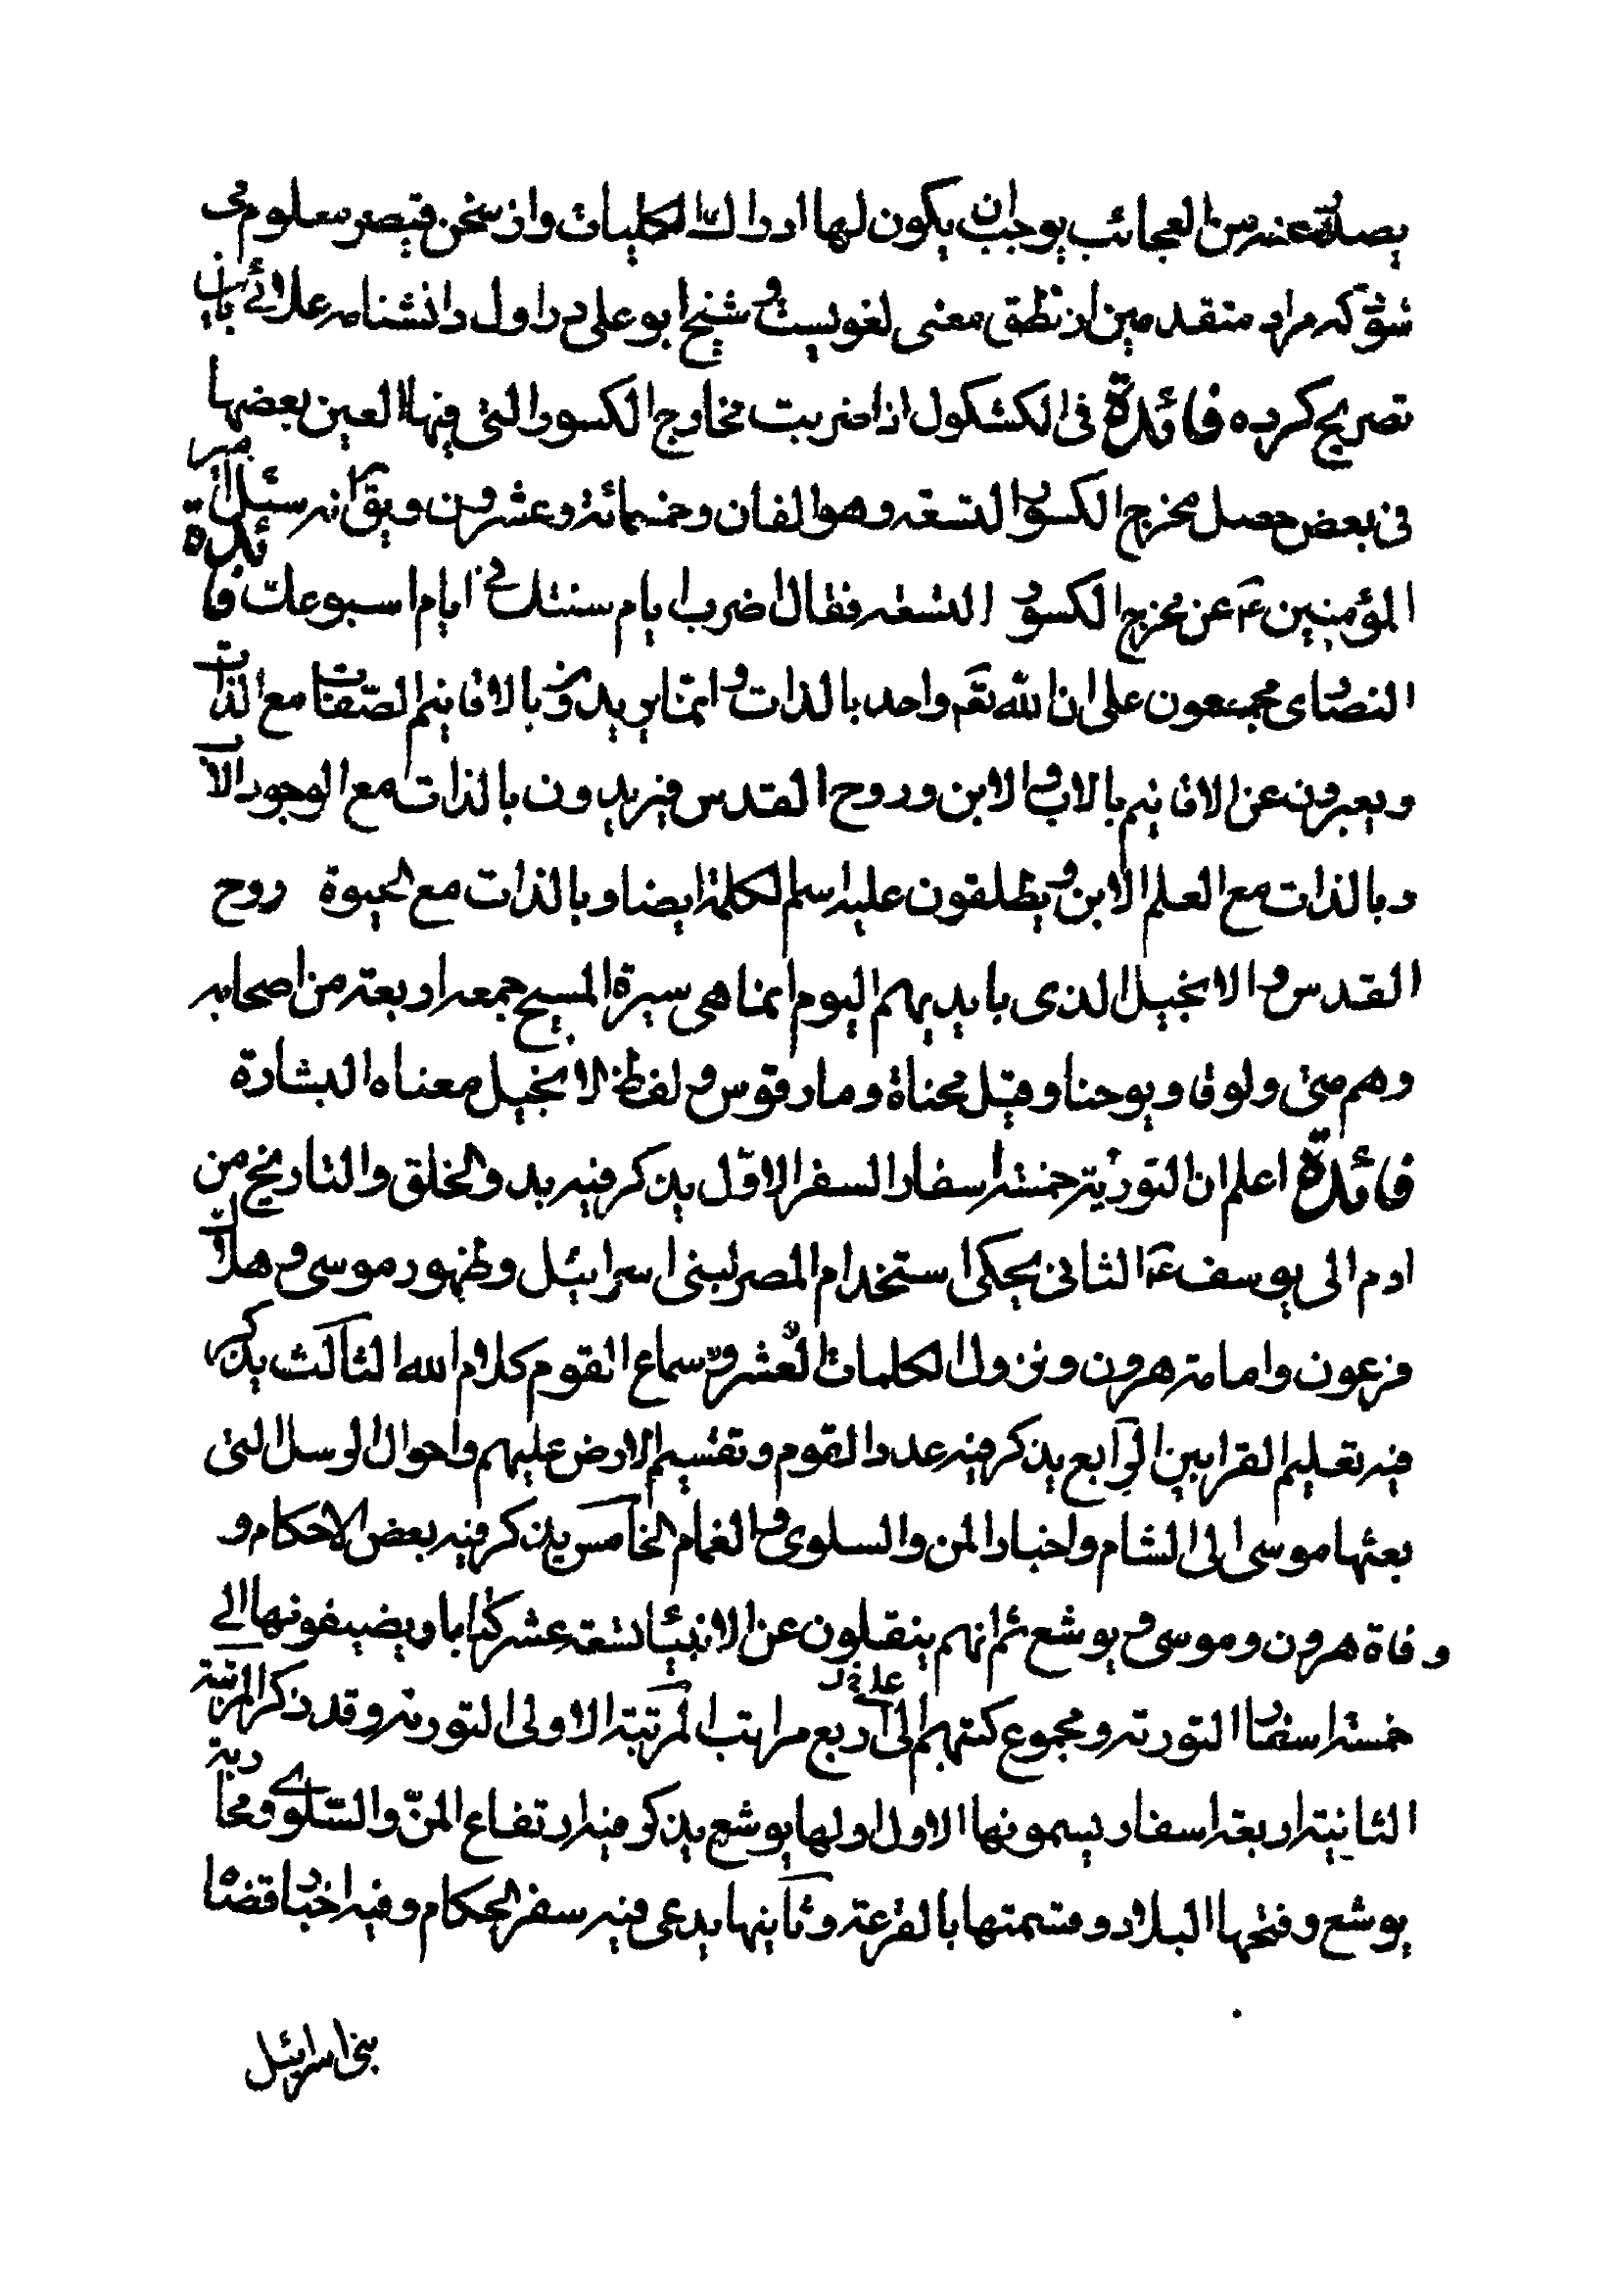 يصدر عنه من العجائب يوجب ان يكون لها ادراك الكليات واز سخن قيصر معلوم مى
شود كه مراد متقدمين از نطق معنى لغويست و شيخ ابو على در اول دانشنامه علائے باين
تصريح كرده فائدة فى الكشكول اذا ضربت مخارج الكسور التى فيها العين بعضها
فى بعض حصل مخرج الكسور التسعه وهو الفان وخمسمائة وعشرون ويق انه سئل امير
المؤمنين ع عن مخرج الكسور التسعه فقال اضرب ايام سنتك فى ايام اسبوعك فائدة
النصارى مجمعون على ان الله تعم واحد بالذات و انما يريدون بالاقانيم الصفات مع الذات
ويعبرون عن الاقانيم بالاب و الابن وروح القدس فيريدون بالذات مع الوجود الاب
وبالذات مع العلم الابن و يطلقون عليه اسم الكلمة ايضا وبالذات مع الحيوة روح
القدس و الانجيل الذى بايديهم اليوم انما هى سيرة المسيح جمعه اربعة من اصحابه
وهم متى ولوقا ويوحنا وقيل محناة ومارقوس و لفظ الانجيل معناه البشارة
فائدة اعلم ان التورية خمسة اسفار السفر الاول يذكر فيه بدو الخلق والتاريخ من
ادم الى يوسف ع الثانى يحكى استخدام المصر لبنى اسرايئل وظهور موسى و هلاك
فرعون وامامة هرون ونزول الكلمات العشر و سماع القوم كلام الله الثالث يذكر
فيه تعليم القرابين الرابع يذكر فيه عدد القوم وتقسيم الارض عليهم واحوال الرسل التى
بعثها موسى الى الشام واخبار المن والسلوى و الغمام الخامس يذكر فيه بعض الاحكام و
وفاة هرون وموسى و يوشع ثم انهم ينقلون عن الانبياء تسعة عشر كتابا ويضيفونها الے
خمسة اسفار التورته ومجموع كتبهم الى اربع مراتب المرتبة الاولى التورته وقد ذكر المرتبة
الثانية اربعة اسفار يسمونها الاول اولها يوشع يذكر فيه ارتفاع المنّ والسّلوے ومحاربة
يوشع وفتحها البلاد وقسمتها بالقرعة وثانيها يدعى فيه سفر الحكام وفيه اخبار قضاة
بنى اسرايئل